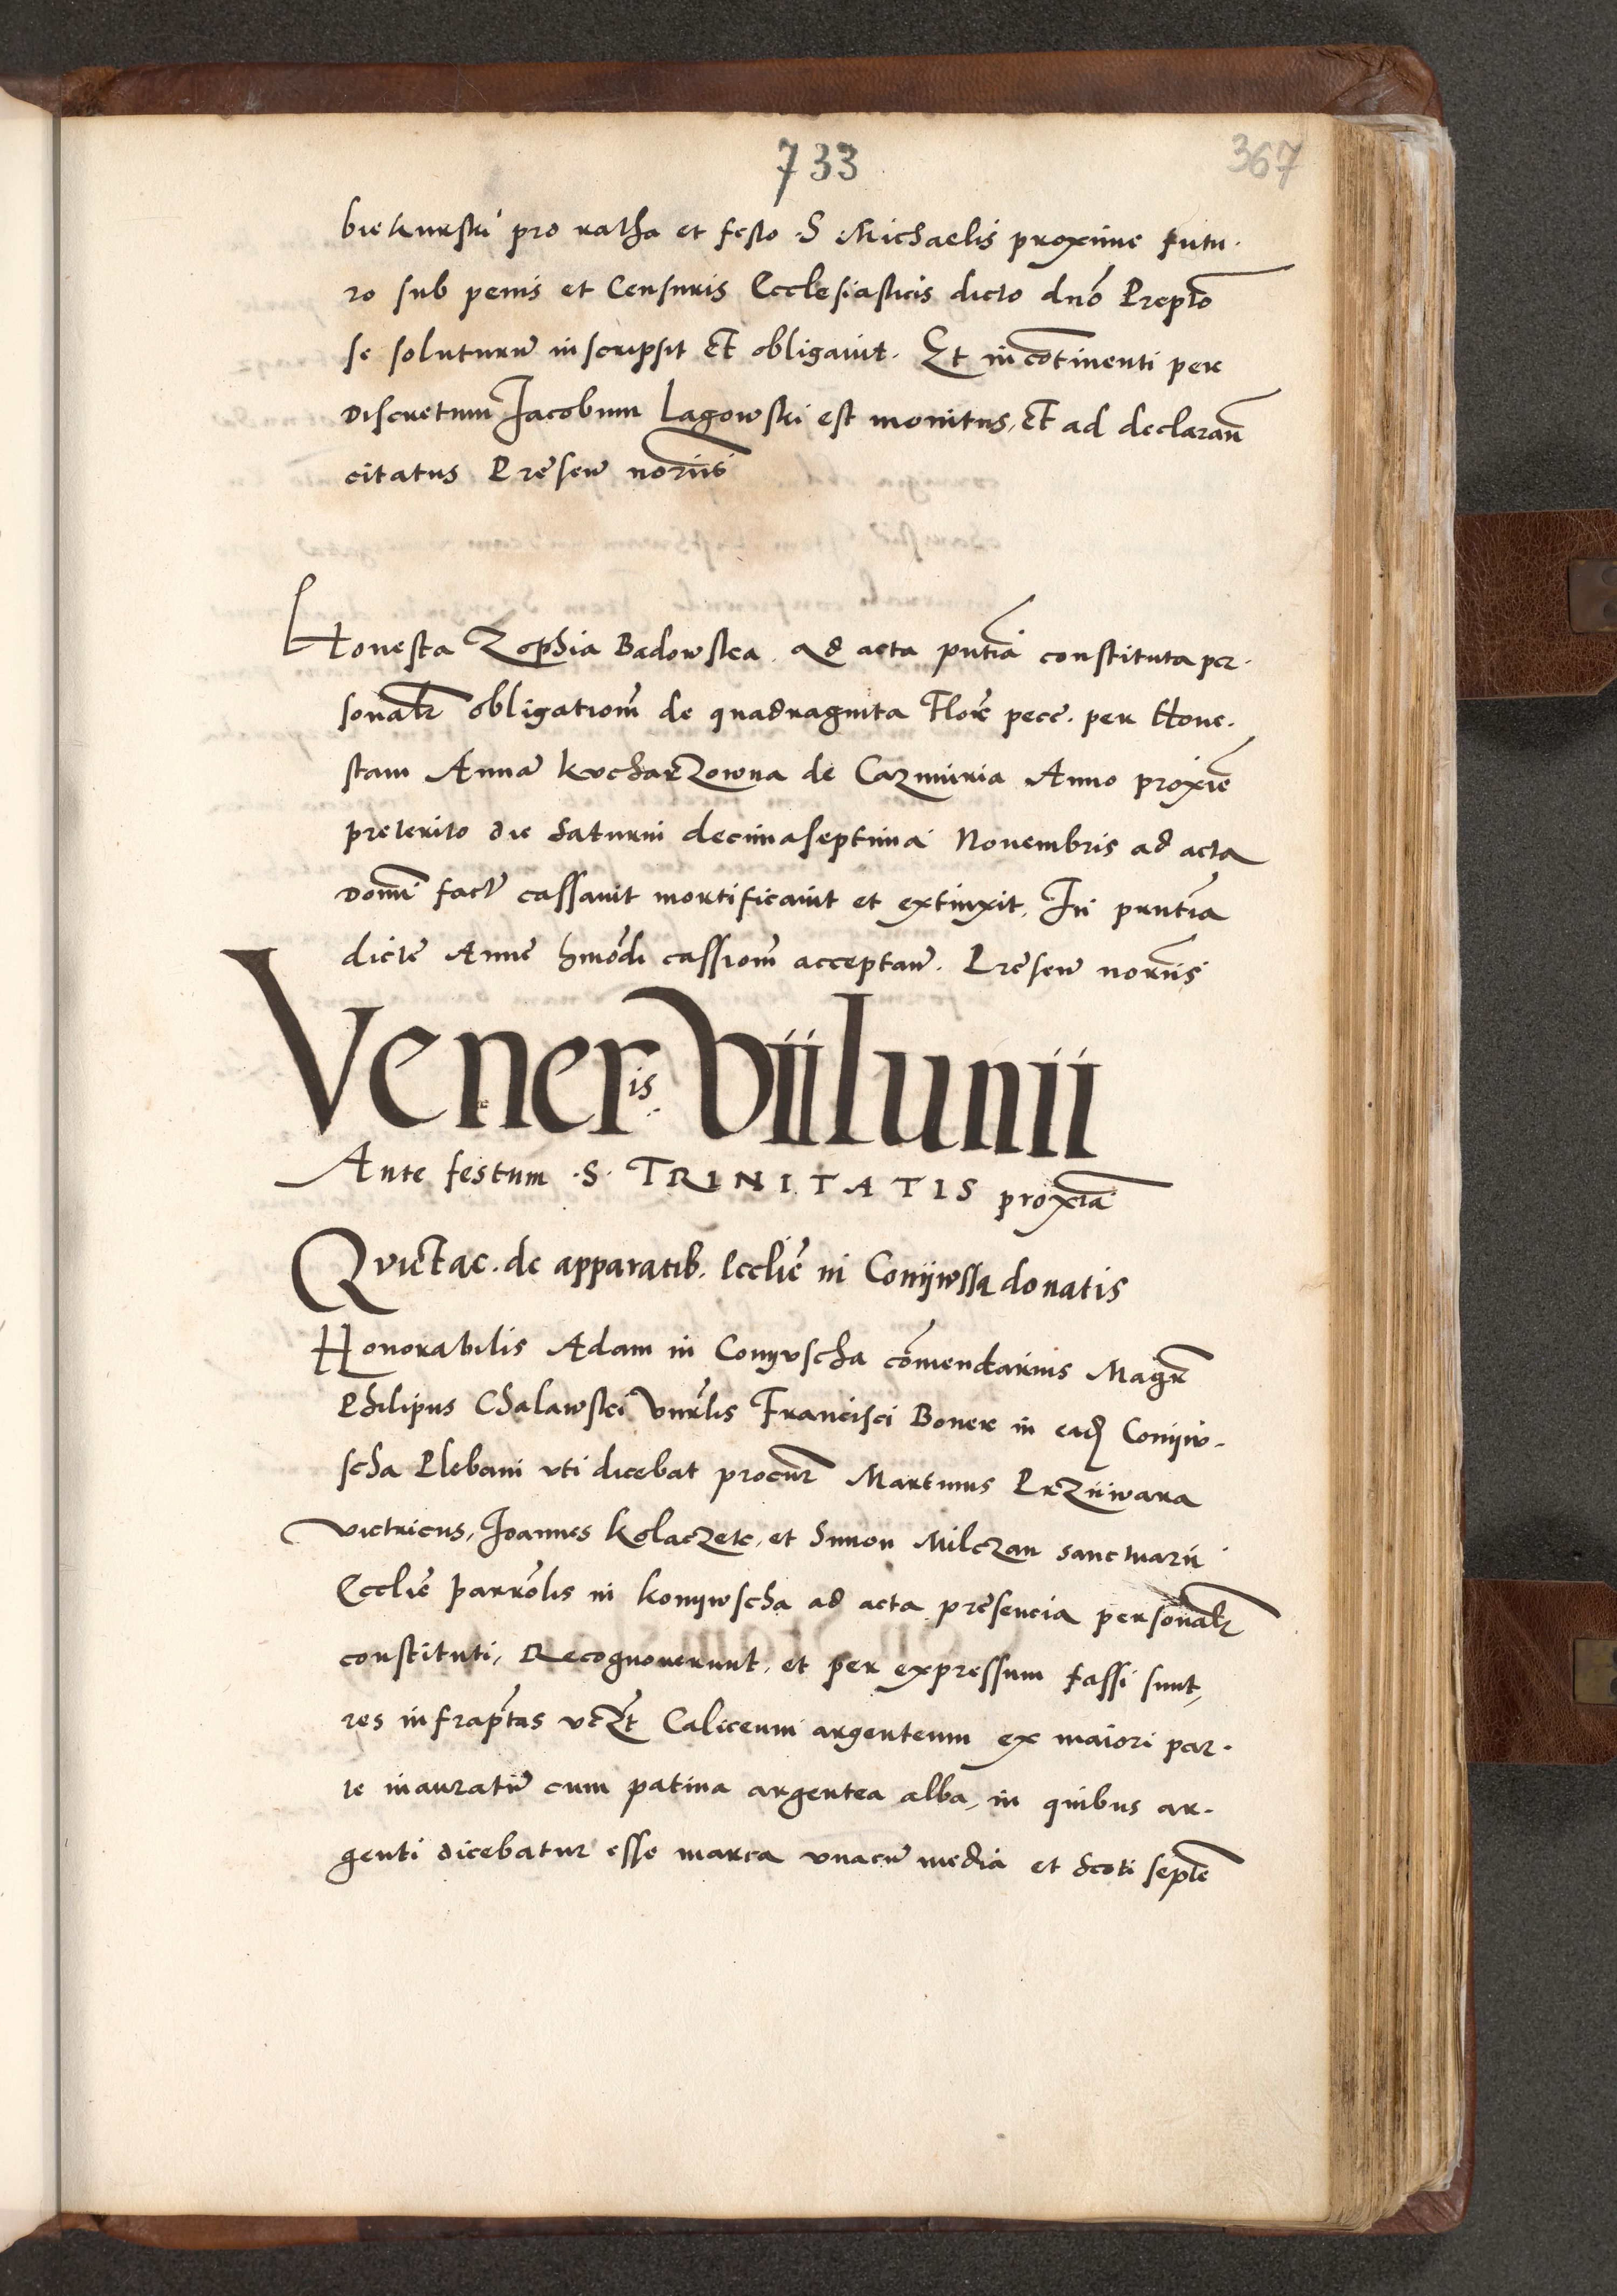 733
367
biekurski pro ratha et festo S Michaelis proxime futu.
ro sub penis et Censuris Ecclesiasticis dicto dno Prepto
se soluturu inscripsit et obligavit. Et incontinenti per
Discretum Jacobum Lagowski est monitus, et ad declaran
citatus Presen noriis
Honesta Zophia Badowska ad acta pntia constituta per.
sonalr obligationem de quadraginta Flore pecc. per Hone.
stam Anna KucharZowna de Cazimiria Anno proxie
preterito die Saturni decimaseptima Novembris ad acta
Domi fact cassavit mortificavit et extinxit, In prntia
dicte Anne hmodi cassiom acceptan. Presen noriis
Veneris vii Iunii
Ante festum S. TRINITATIS proxia
Quietac. de apparatib. Ecclie in Conijwssa donatis
Honorabilis Adam in Conyuscha comendarius Magr
Philipus Chalawski Vnrlis Francisci Boner in ead Conijw.
scha Plebani uti dicebat procur Martinus PrZiiwara
victricus, Joannes Kolaczek, et Simon Milczan sanctuarii
Ecclie parrolis in Konijwscha ad acta presencia personalr
constituti, Recognoverunt, et per expressum fassi sunt,
res infraptas vcZt Caliceum argenteum ex maiori par.
te inauratu cum patina argentea alba, in quibus ar.
genti dicebatur esse marca unacu media et Scoti septe